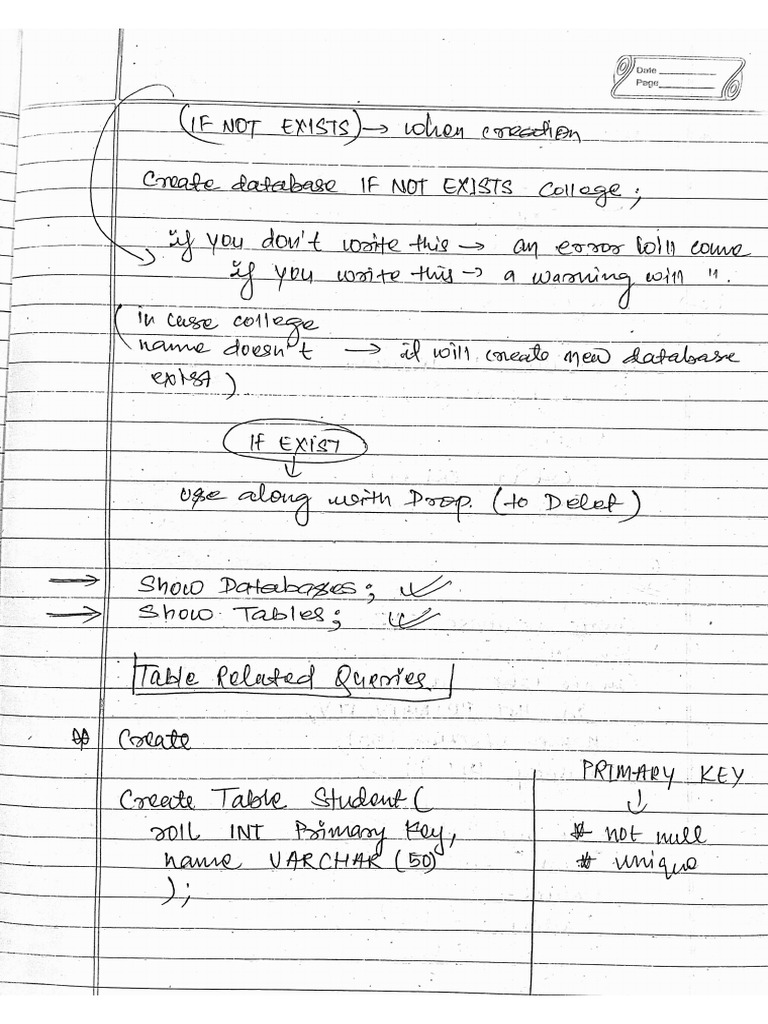 Date
Page
(IF NOT EXISTS) → when creation
Create database IF NOT EXISTS College;
if you don't write this → an error will come
if you write this → a warning will ".
(in case college
name doesn't → it will create new database
exist)
IF EXIST
↓
use along with Drop. (to Delet)
→ Show Databases; ✓
→ Show Tables; ✓
Table Related Queries
Create
Create Table Student (
roll INT Primary Key,
name VARCHAR (50)
);
PRIMARY KEY
↓
* not null
* unique